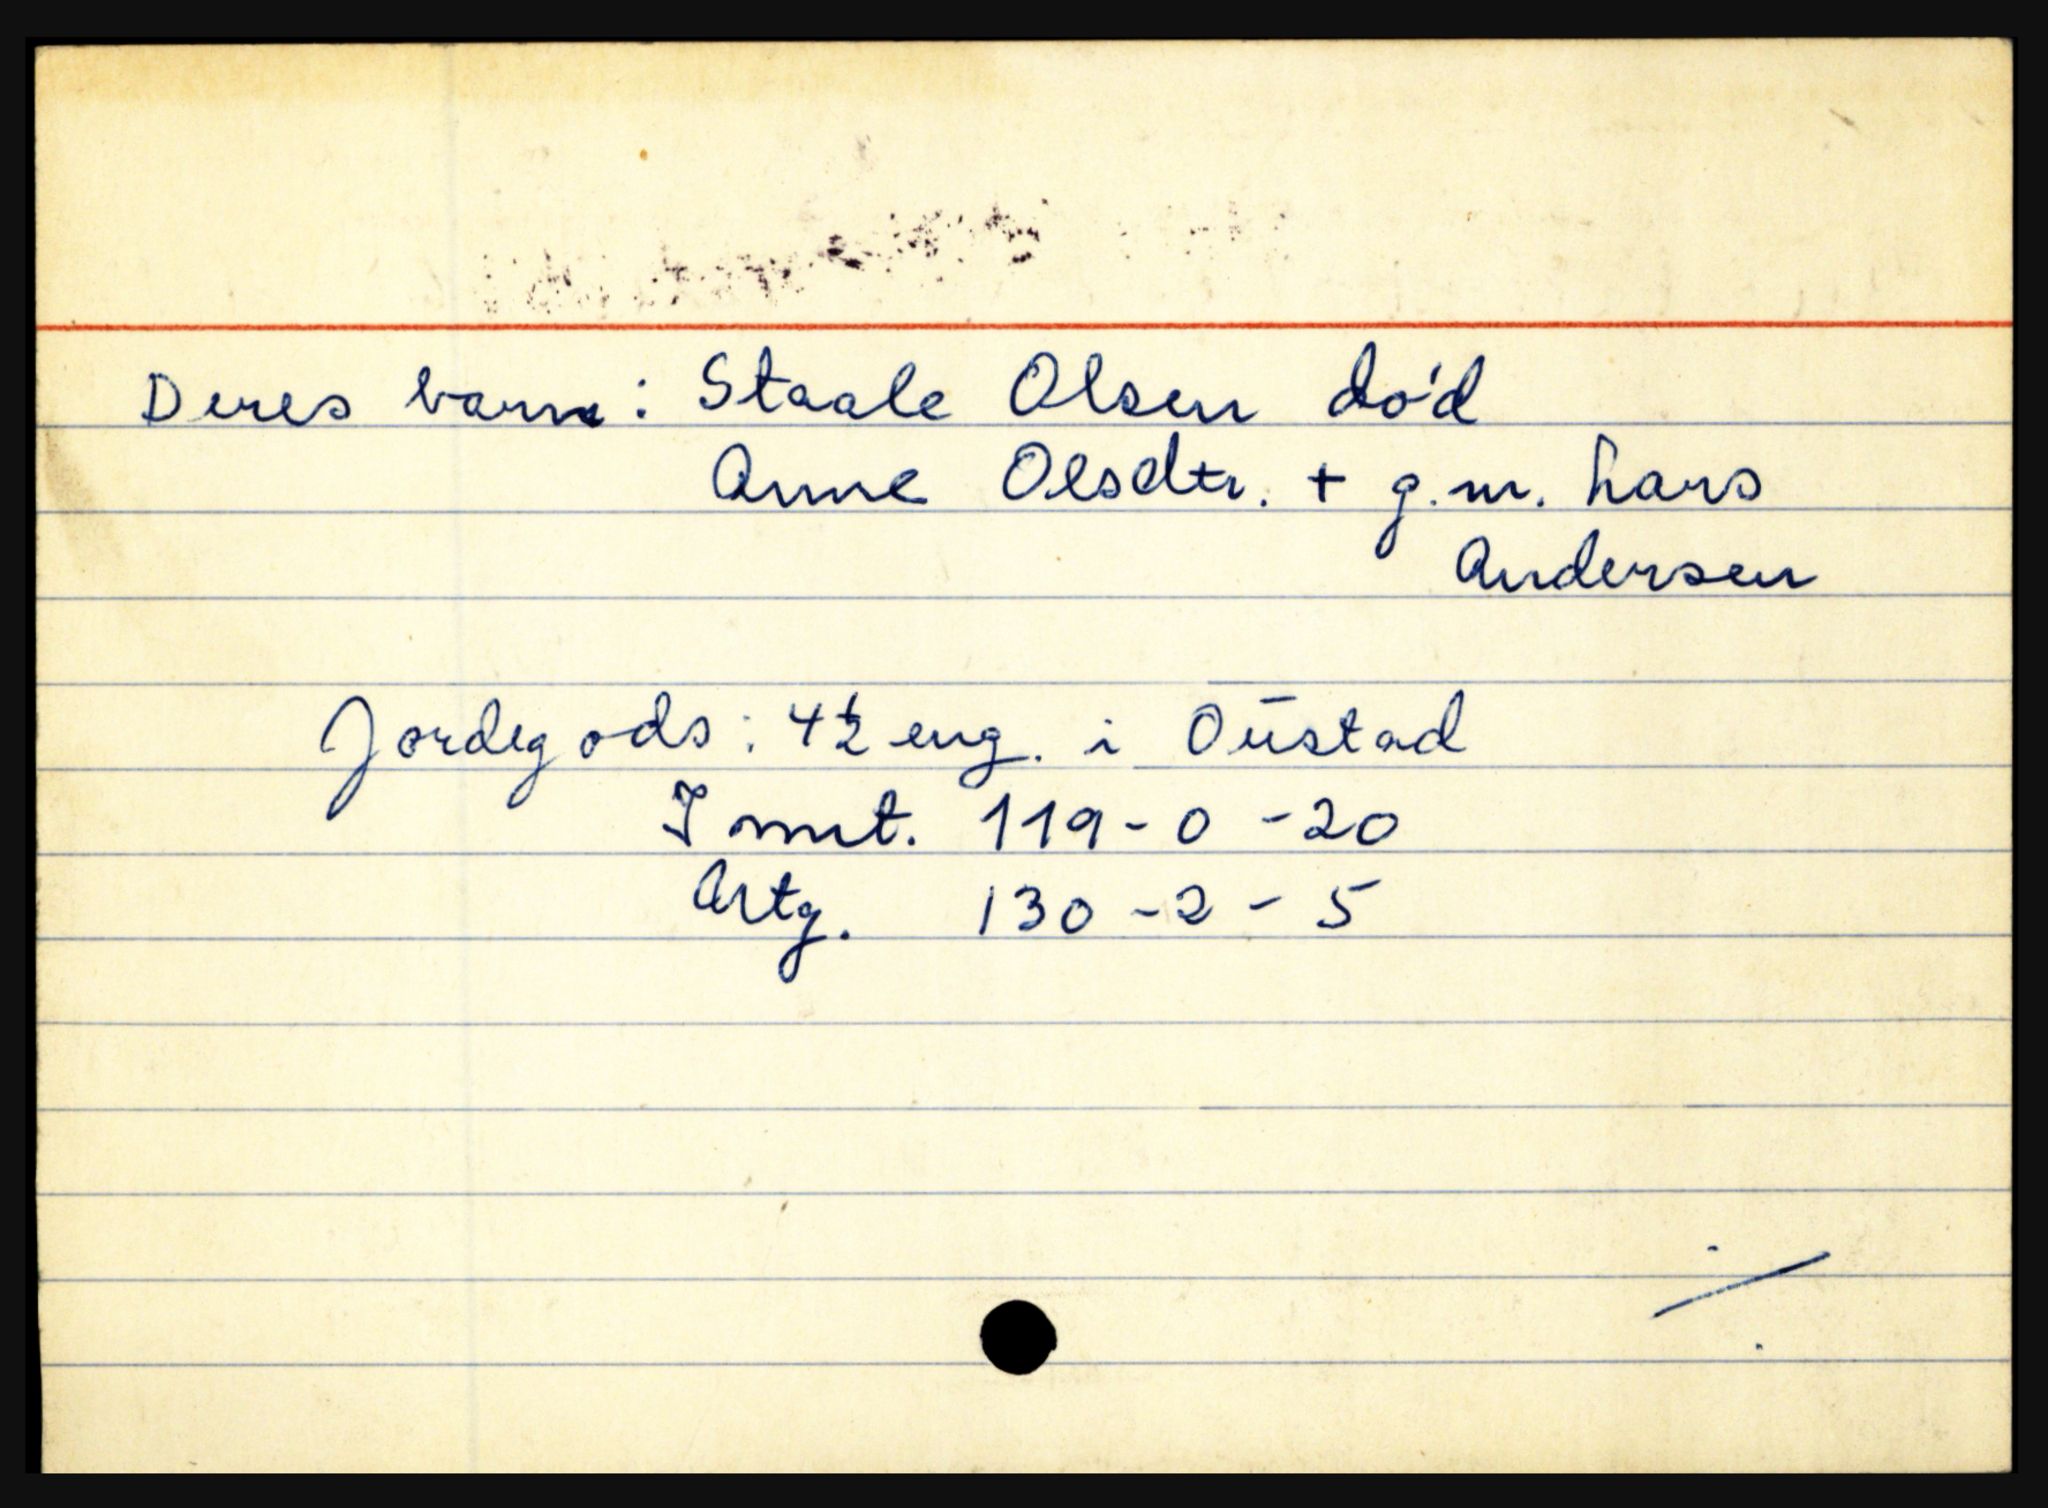 Deres barn: Staale Olsen død
Anne Olsdtr. + g.m. Lars
Andersen
Jordegods: 4½ eng. i Oustad
I mnt. 119 - 0 - 20
Artg. 130 - 2 - 5